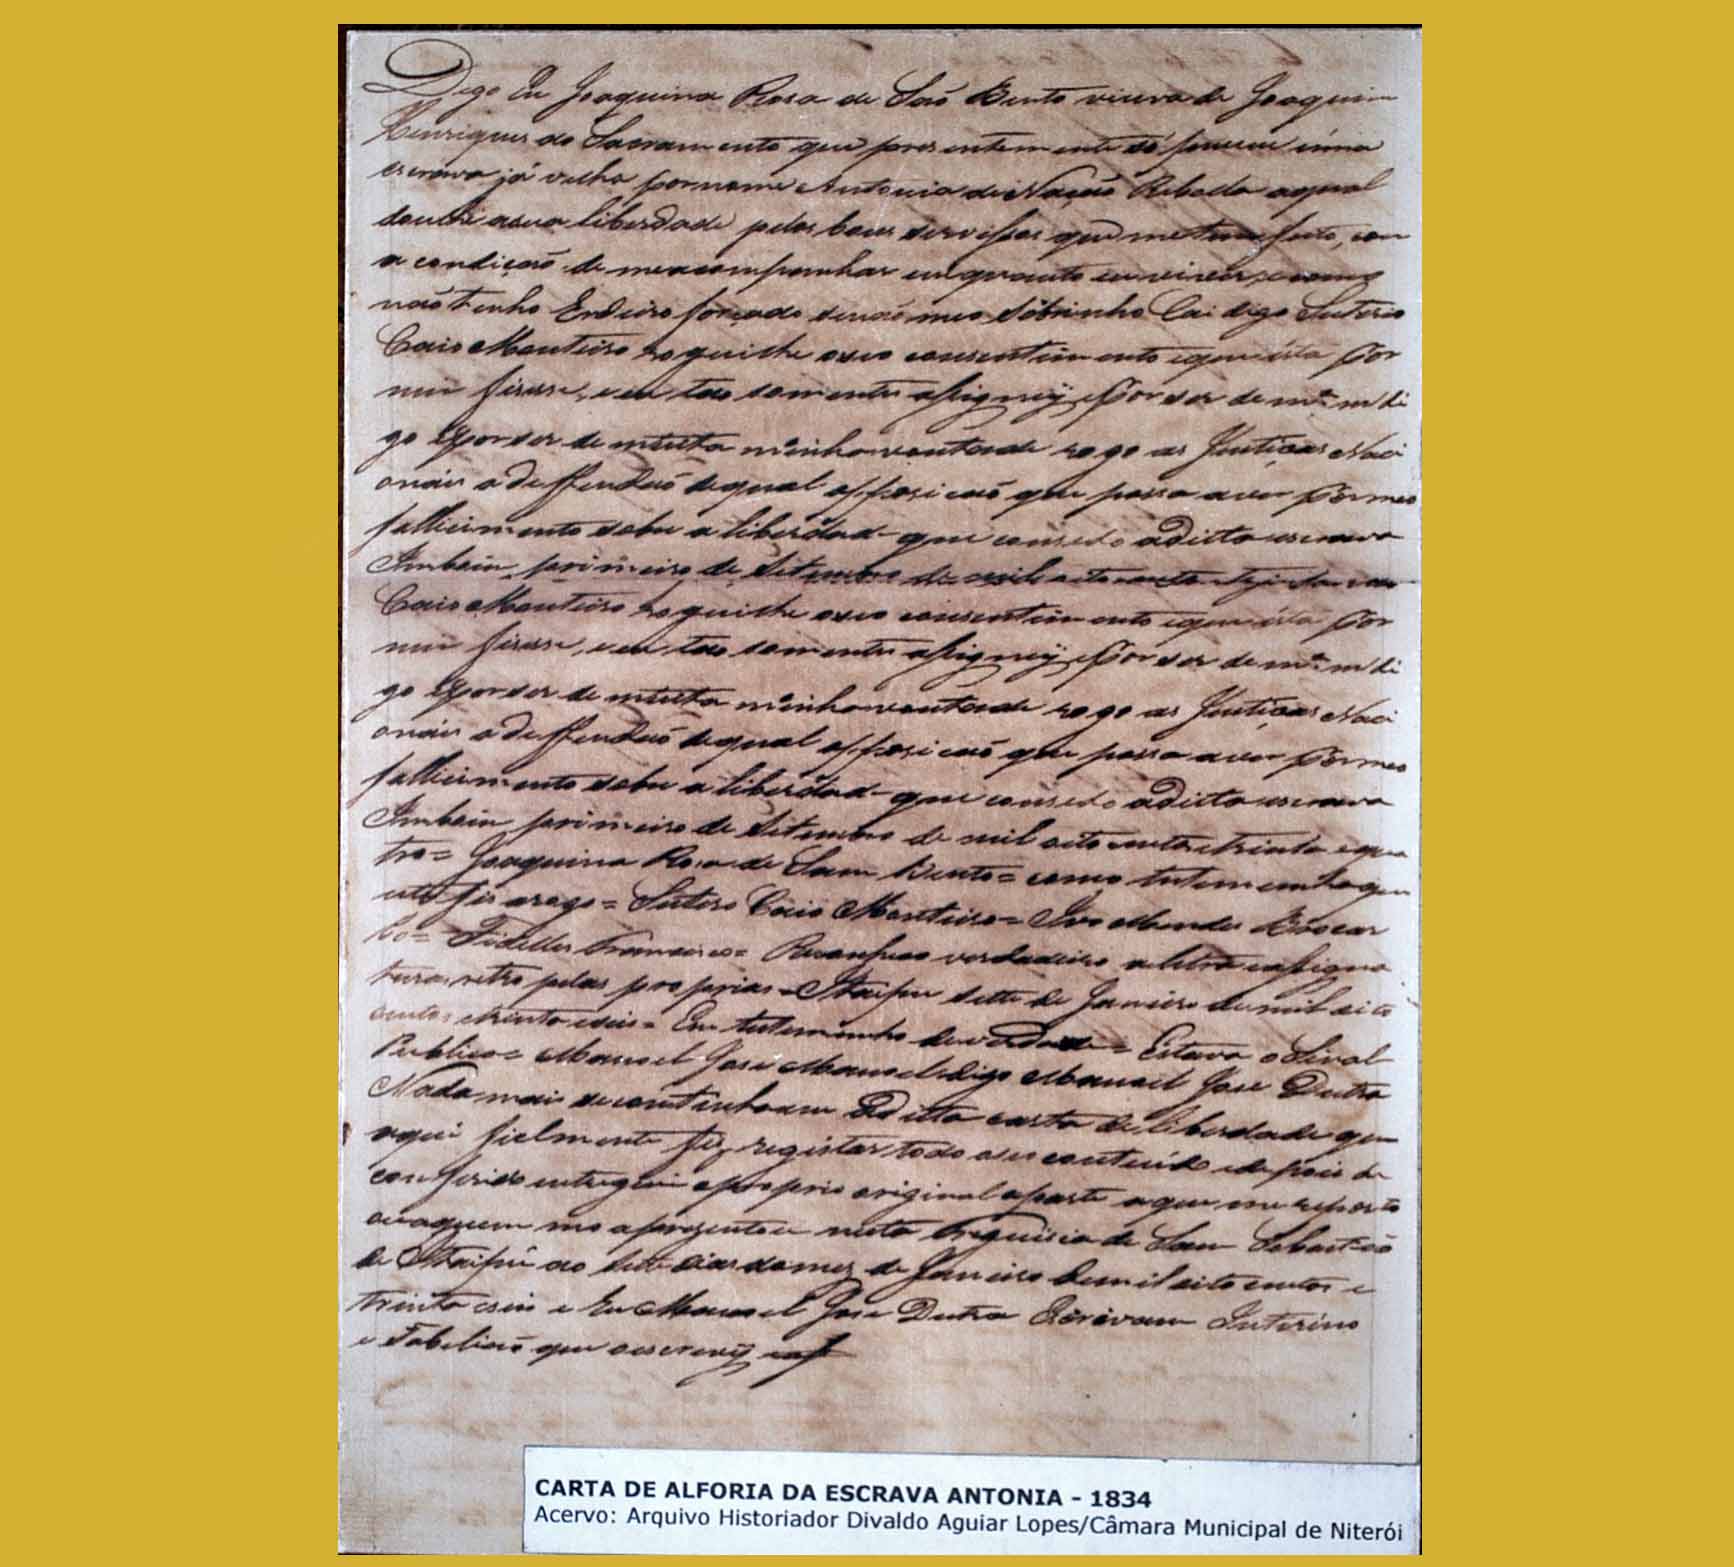 Digo Eu Joaquina Rosa de Saõ Bento viuva de Joaquim
Henriques do Sacramento que presentemente só pessuu huma
escrava já velha por nome Antonia de Nação Rebolla aqual
deixei asua liberdade pelos bons servissos que me tem feito, com
a condicaõ de meacompanhar enquanto eu viver, e como
naõ tenho Erdeiro forçado senaõ meo Sobrinho Cai digo Suterio
Caio Monteiro rogueilhe oseo consentimento eque esta por
mim fizesse, e eu tao somente assigney, e por ser de mª. m di
go e por ser de muita minha vontade rogo as Justiças Naci
onais a deffendaõ de qual opposicaõ que possa aver por meo
fallicimento sobre a liberdad- que consedo aditta escrava
Imbain primeiro de Setembro de mil oito centos trinta
Caio Monteiro roguilhe oseo consentimento eque esta por
mim fizesse, e eu tao somente assigney, e por ser de mª. m di
go e por ser de muita minha vontade rogo as Justiças Naci
onais a deffendaõ de qual opposicaõ que possa aver por meo
fallicimento sobre a liberdad- que consedo aditta escrava
Imbain primeiro de Setembro de mil oito centos etrinta equa
tro= Joaquina Rosa de Sam Bento= como testemunha que
este fiz arogo= Suterio Caio Monteiro= Ivo Mendes
bo= Fidelles Francisco= Reconheso verdadeira a letra e assigna
turas retro pelas proprias= Itaipu sette de Janeiro de mil oito
centos etrinta eseis= Em testemunho de verdade= Estava o Sinal
Publico= Manoel Jose Manoel digo Manoel Jose Dutra
Nada mais se continha em Ditta carta de liberdade que
aqui fielmente fiz registar todo oseo conteúdo edepois de
conferido entreguei o proprio original aparte aque me reporto
ouaquem mo aprezentou nesta Freguisia de Sam Sebastiaõ
de Itaipú ao sette dias do mez de Janeiro demil oito centos e
trinta eseis e Eu Manoel Jose Dutra Escrivam Interino
e Tabeliaõ que oescrevÿ
CARTA DE ALFORIA DA ESCRAVA ANTONIA - 1834
Acervo: Arquivo Historiador Divaldo Aguiar Lopes/Câmara Municipal de Niterói